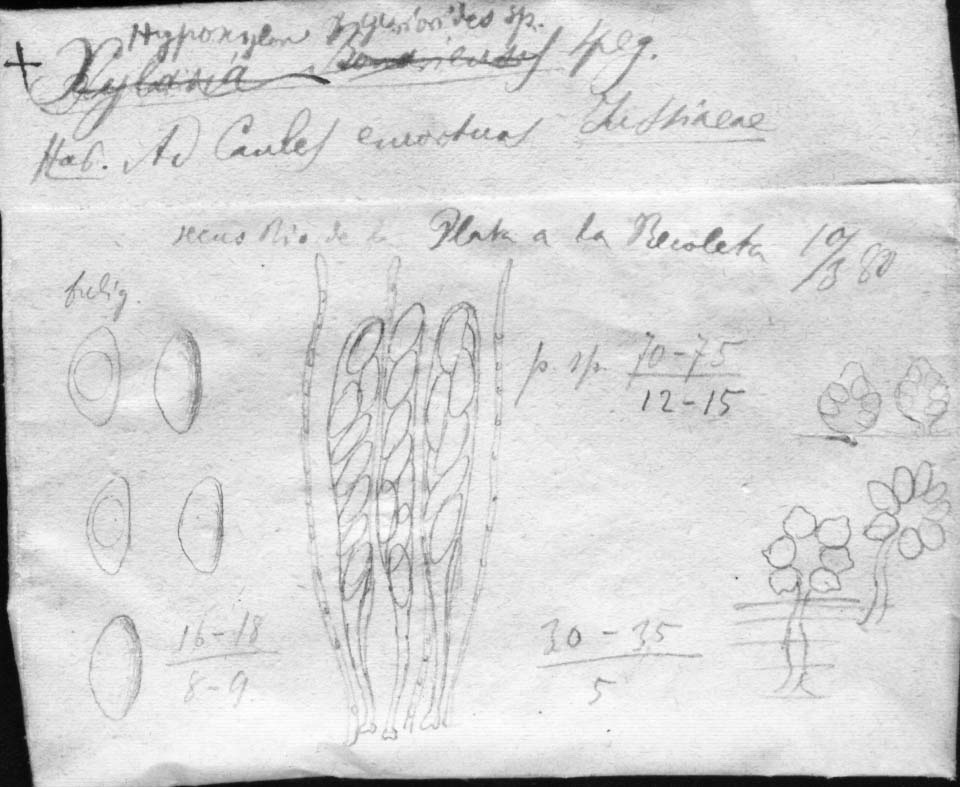 Hypoxylon xylarioides sp.
+ Xylaria Bonariensis Speg.
Hab. Ad Caules emortuas Jussiaeae
secus Rio de la Plata a la Recoleta 10/3 80
fulig.
p. sp. 70-75
12-15
16-18
8-9.
30-35
5